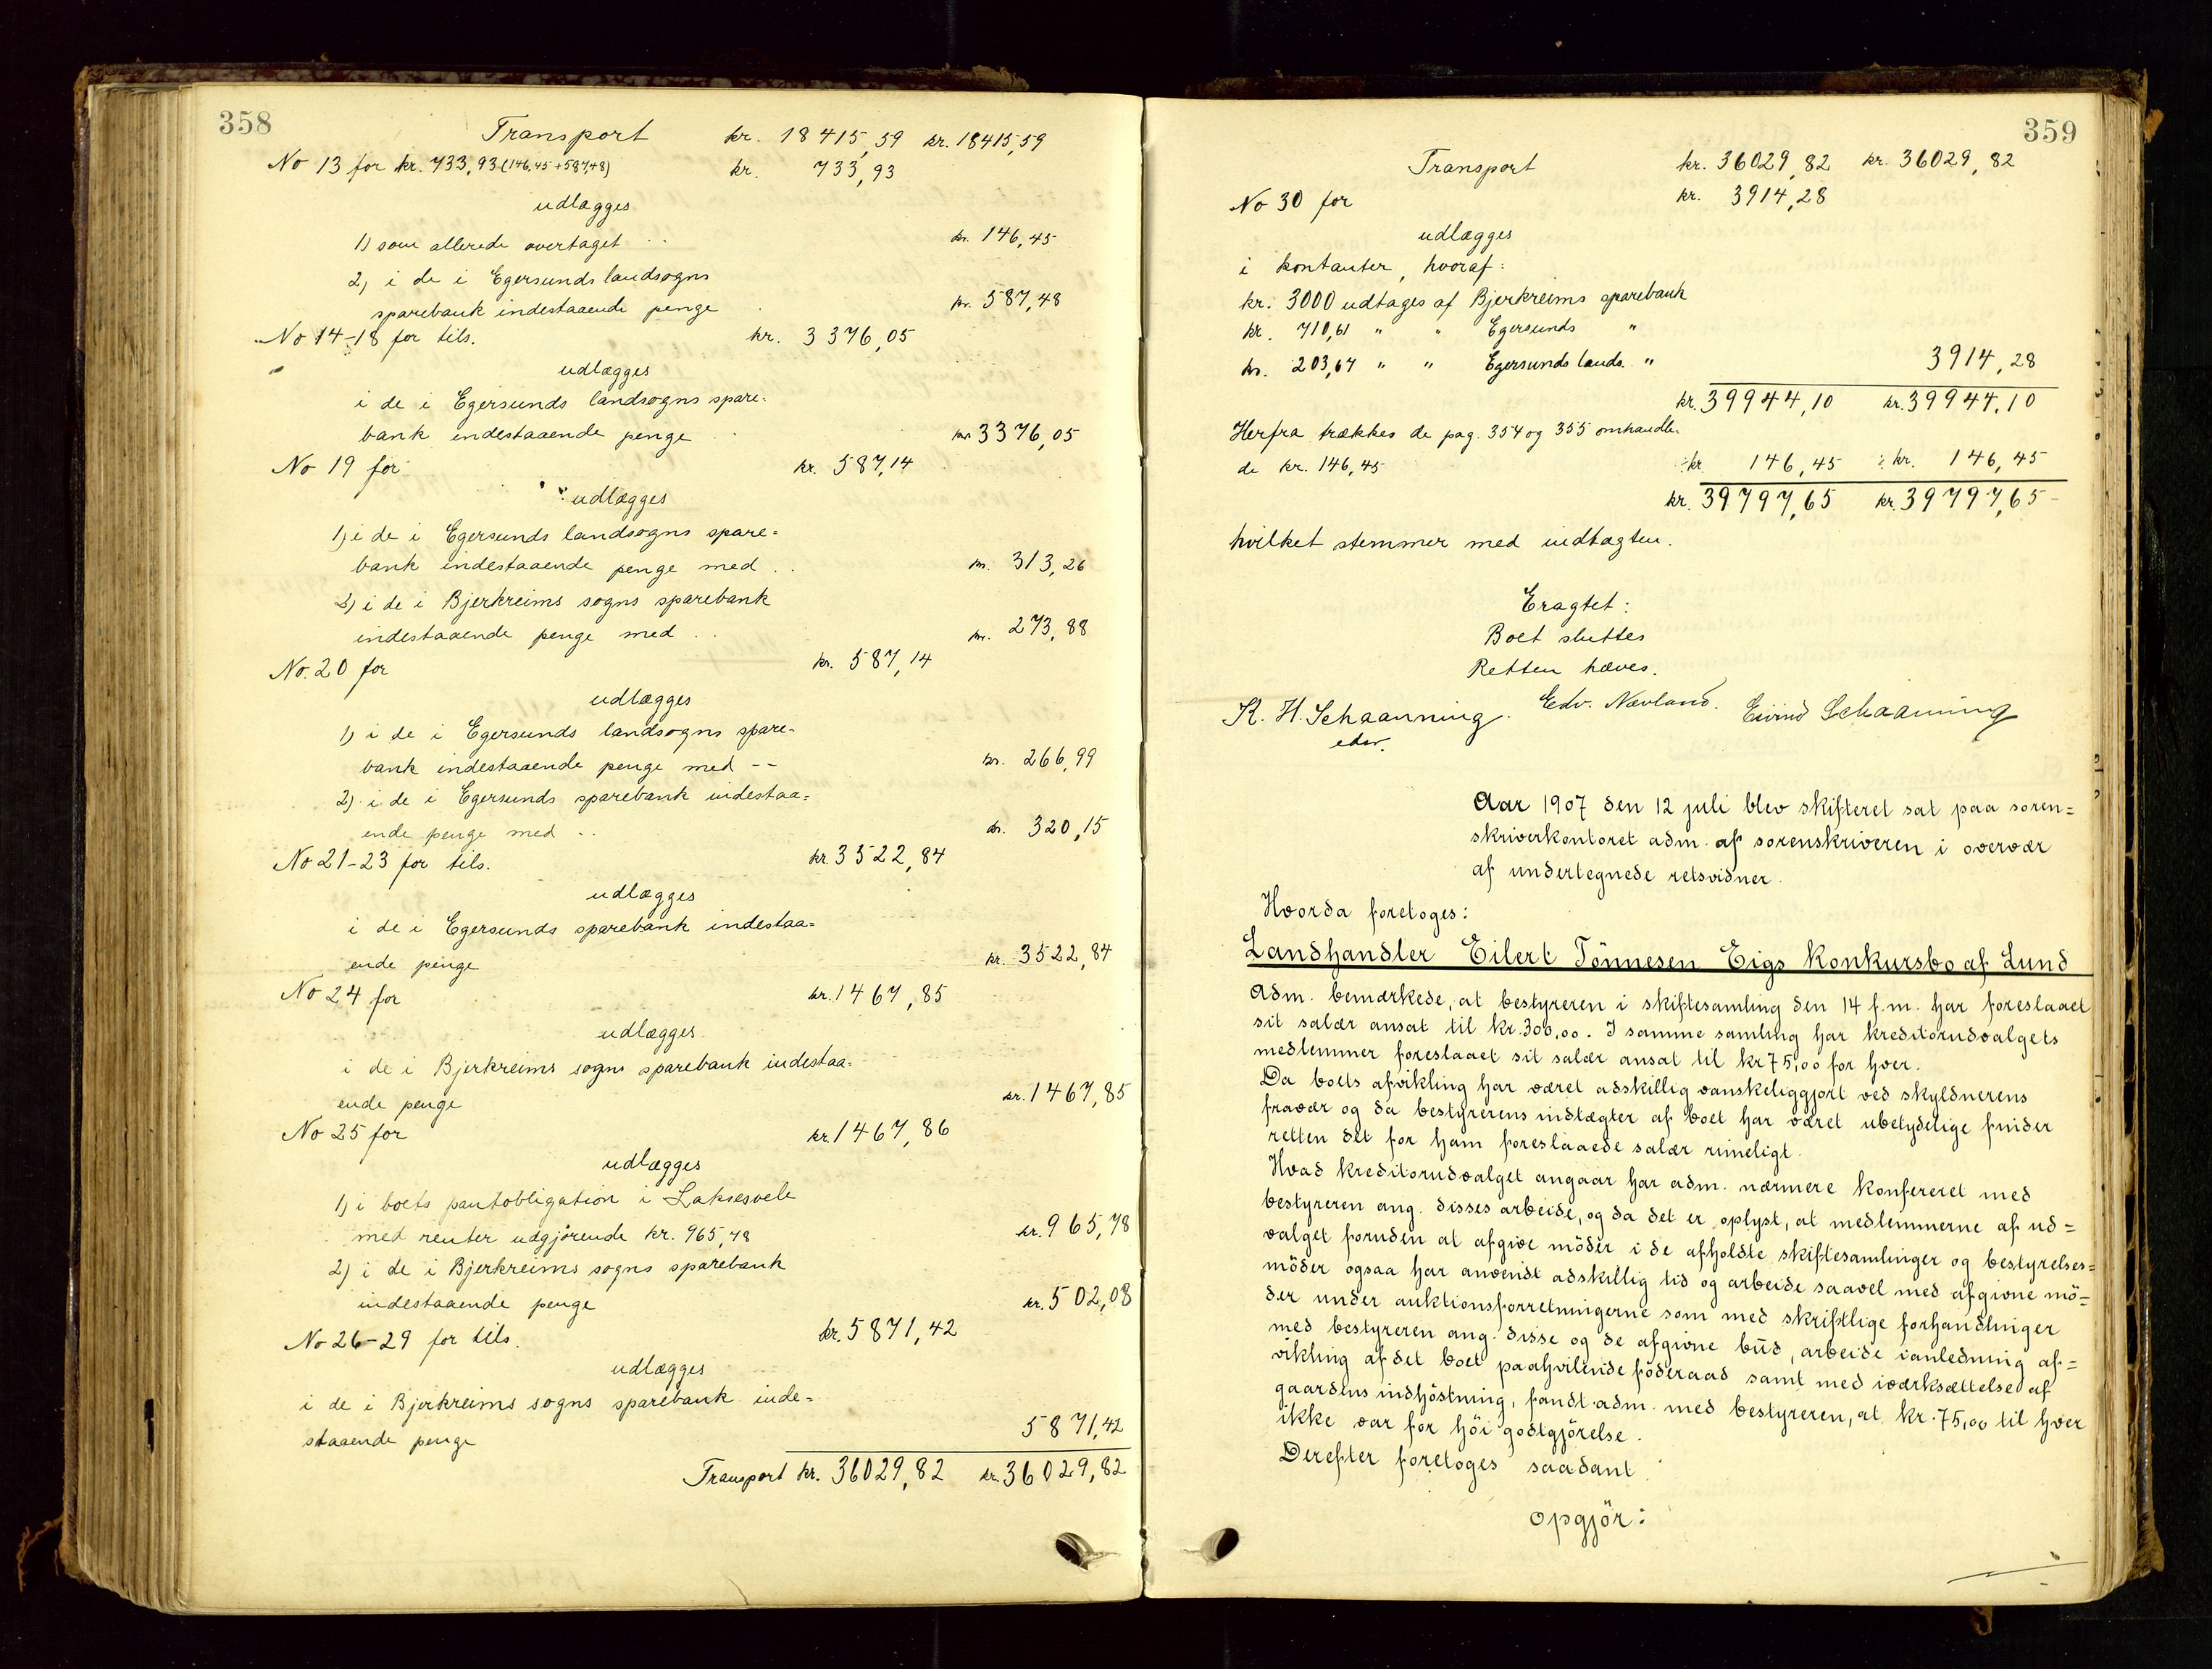 358
Transport kr. 18415,59 kr. 18415,59
No 13 for kr. 733,93 (146,45+587,48) kr. 733,93
udlægges
1) som allerede overtaget .. kr. 146,45
2) i de i Egersunds landsogns
sparebank indestaaende penge . kr. 587,48
No 14-18 for tils. kr. 3376,05
udlægges
i de i Egersunds landsogns spare-
bank indestaaende penge .. kr 3376,05
No 19 for kr. 587,14
udlægges
1) i de i Egersunds landsogns spare=
bank indestaaende penge med .. kr. 313,26
2) i de i Bjerkreims sogns sparebank
indestaaende penge med .. kr. 273,88
No. 20 for kr. 587,14
udlægges
1) i de i Egersunds landsogns spare-
bank indestaaende penge med -- kr. 266,99
2) i de i Egersunds sparebank indestaa=
ende penge med .. kr. 320,15
No 21-23 for tils. kr. 3522,84
udlægges
i de i Egersunds sparebank indestaa=
ende penge kr. 3522,84
No 24 for kr. 1467,85
udlægges
i de i Bjerkreims sogns sparebank indestaa=
ende penge kr. 1467,85
No 25 for kr 1467,86
udlægges
1) i boets pantobligation i Laksesvele
med renter udgjørende kr. 965,78 kr. 965,78
2) i de i Bjerkreims sogns sparebank
indestaaende penge kr. 502,08
No 26-29 for tils. kr. 5871,42
udlægges
i de i Bjerkreims sogns sparebank inde=
staaende penge 5871,42
Transport kr. 36029,82 kr. 36029,82
359
Transport kr. 36029,82 kr. 36029,82
No 30 for kr. 3914,28
udlægges
i kontanter, hvoraf:
kr. 3000 udtages af Bjerkreims sparebank
kr. 710,61 " " Egersunds "
kr. 203,67 " " Egersunds lands. " 3914,28
kr. 39944,10 kr. 39944,10
Herfra trækkes de pag. 354 og 355 omhandle-
de kr. 146,45 ÷ kr. 146,45 ÷ kr. 146,45
kr. 39797,65 kr. 39797,65
hvilket stemmer med indtægten.
Eragtet:
Boet sluttes
Retten hæves.
K. H. Schaanning. Edv. Nævland. Eivind Schaanning
edsv.
Aar 1907 den 12 juli blev skifteret sat paa soren=
skriverkontoret adm. af sorenskriveren i overvær
af undertegnede retsvidner.
Hvorda foretoges:
Landhandler Eilert Tönnesen Eigs Konkursbo af Lund
Adm. bemærkede, at bestyreren i skiftesamling den 14 f.m. har foreslaaet
sit salær ansat til kr. 300,00. I samme samling har kreditorudvalgets
medlemmer foreslaaet sit salær ansat til kr 75,00 for hver.
Da boets afvikling har været adskillig vanskeliggjort ved skyldnerens
fravær og da bestyrerens indtægter af boet har været ubetydelige finder
retten det for ham foreslaaede salær rimeligt.
Hvad kreditorudvalget angaar har adm. nærmere konfereret med
bestyreren ang. disses arbeide, og da det er oplyst, at medlemmerne af ud=
valget foruden at afgive möder i de afholdte skiftesamlinger og bestyrelses=
möder ogsaa har anvendt adskillig tid og arbeide saavel med afgivne mö=
der under auktionsforretningerne som med skriftlige forhandlinger
med bestyreren ang. disse og de afgivne bud, arbeide i anledning af=
vikling af det boet paahvilende föderaad samt med iværksættelse af
gaardens indhöstning, fandt adm. med bestyreren, at kr. 75,00 til hver
ikke var for höi godtgjörelse.
Derefter foretoges saadant
opgjör: